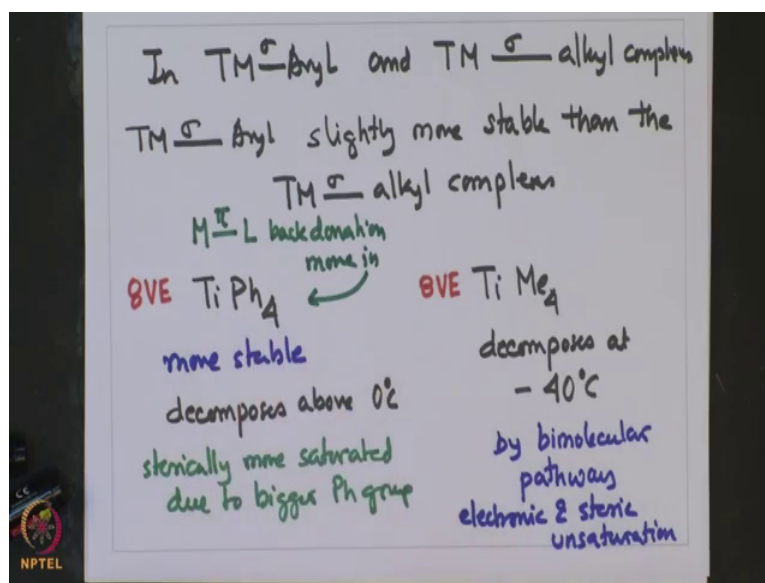 In TM σ Aryl and TM σ alkyl complexes
TM σ Aryl slightly more stable than the
TM σ alkyl complexes
M π L back donation
more in
8VE Ti Ph4
8VE Ti Me4
more stable
decomposes above 0°C
sterically more saturated
due to bigger Ph group
decomposes at
- 40°C
by bimolecular
pathway
electronic & steric
unsaturation
NPTEL